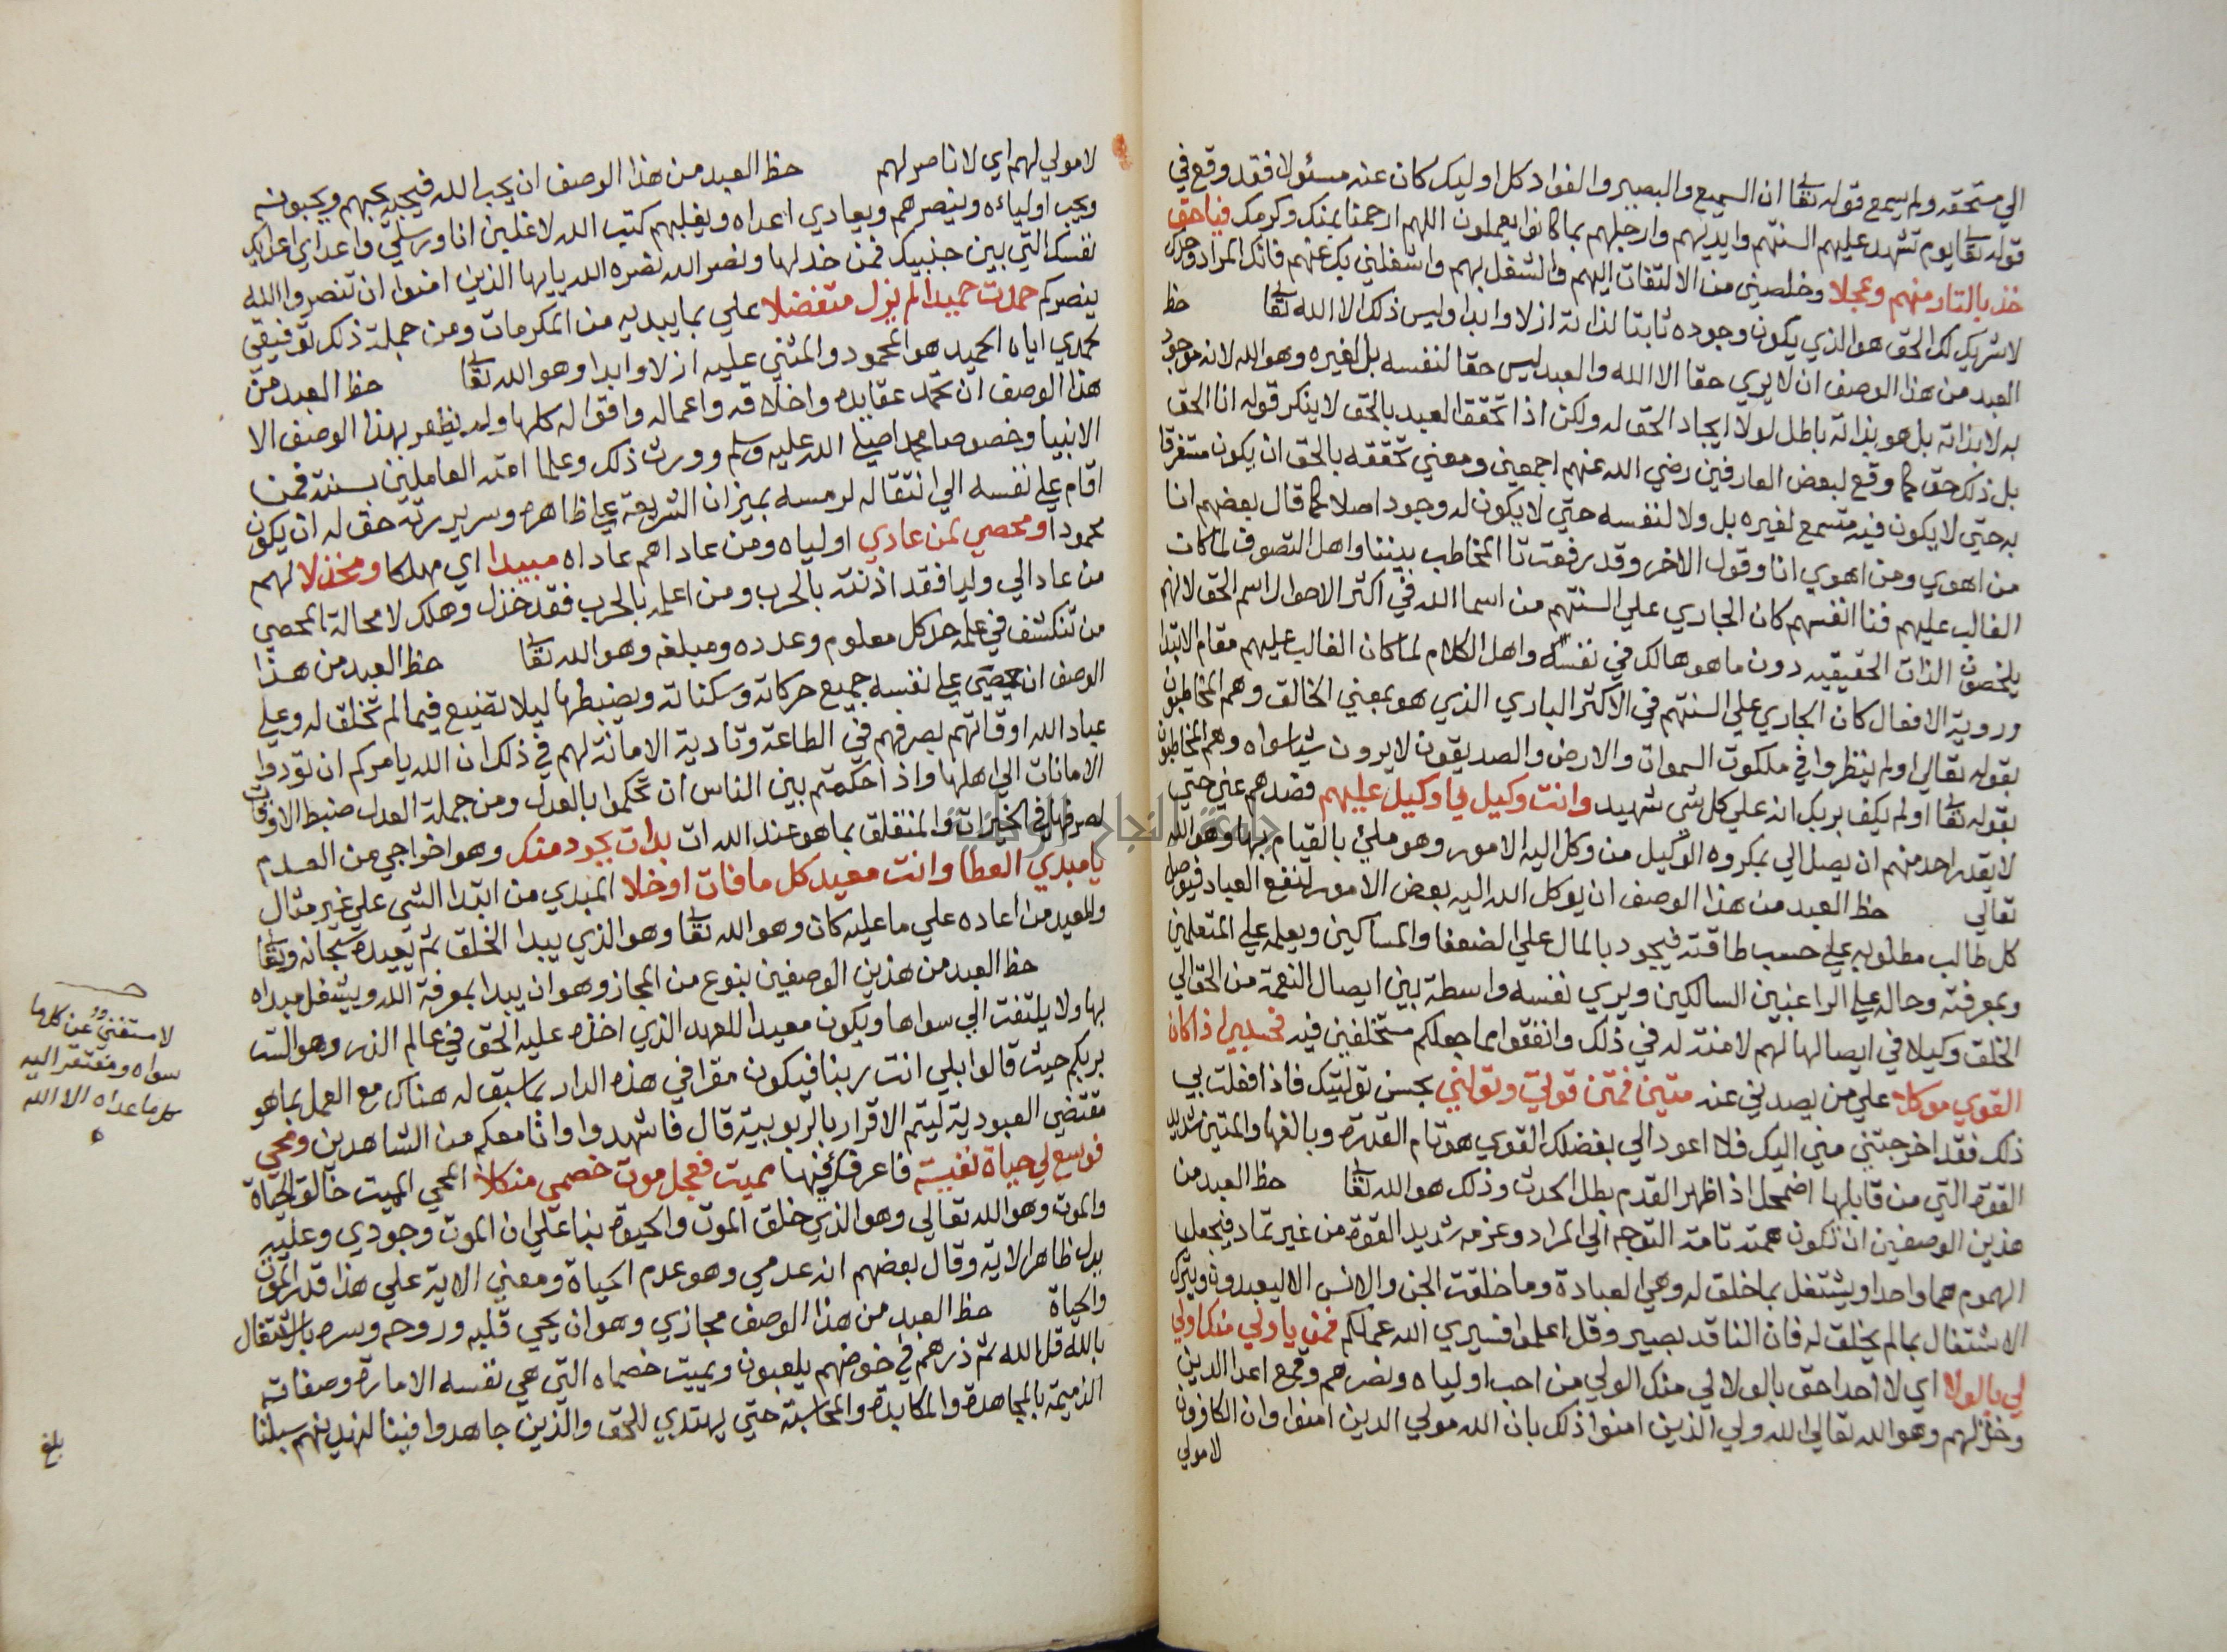 الي مستحقه ولم يسمع قوله تعا ان السميع والبصير والفواد كل اوليك كان عنه مسئولا فقد وقع في
قوله تعا يوم تشهد عليهم السنتهم وايديهم وارجلهم بما كانوا يعملون اللهم ارحمنا بمنك وكرمك فيا حق
خذ بالثار منهم وعجلا وخلصني من الالتفات اليهم والشغل بهم واشغلني بك عنهم فانك المراد وحدك
لا شريك لك الحق هو الذي يكون وجوده ثابتا لذاته ازلا وابدا وليس ذلك الا الله تعا حظ
العبد من هذا الوصف ان لا يري حقا الا الله والعبد ليس حقا لنفسه بل لغيره وهو الله لانه موجود
به لا بذاته بل هو بذاته باطل لولا ايجاد الحق له ولكن اذا تحقق العبد بالحق لا ينكر قوله انا الحق
بل ذلك حق كما وقع لبعض العارفين رضي الله عنهم اجمعين ومعني تحققه بالحق ان يكون مستغرقا
به حتي لا يكون فيه متسع لغيره بل ولا لنفسه حتي لا يكون له وجود اصلا كما قال بعضهم انا
من اهوي ومن اهوي انا وقول الاخر وقد رفعت تا المخاطب بيننا واهل التصوف لما كان
الغالب عليهم فنا انفسهم كان الجاري علي السنتهم من اسما الله في اكثر الاحوال اسم الحق لانهم
يلحظون الذات الحقيقيه دون ما هو هالك في نفسه واهل الكلام لما كان الغالب عليهم مقام الابتدا
وروية الافعال كان الجاري علي السنتهم في الاكثر الباري الذي هو بمعني الخالق وهم المخاطبون
بقوله تعالي اولم ينظروا في ملكوت السموات والارض والصديقون لا يرون شيا سواه وهم المخاطبون
بقوله تعا اولم يكف بربك انه علي كل شي شهيد وانت وكيل لي اوكيل عليهم فصدهم عني حتي
لا يقدر احد منهم ان يصل الي بمكروه الوكيل من وكل اليه الامور وهو ملي بالقيام بها وهو الله
تعالي حظ العبد من هذا الوصف ان يوكل الله اليه بعض الامور لنفع العباد فيوصل
كل طالب مطلوبه علي حسب طاقته فيجود بالمال علي الضعفا والمساكين وبعلمه علي المتعلمين
وبمعرفته وحاله علي الراغبين السالكين ويري نفسه واسطة بين ايصال النعمة من الحق الي
الخلق وكيلا في ايصالها لهم لا منة له في ذلك وانفقوا مما جعلكم مستخلفين فيه فحسبي اذا كان
القوي موكلا علي من يصدني عنه متين فمتن قوتي وتولني بحسن توليتك فاذا فعلت بي
ذلك فقد اخرجتني مني اليك فلا اعود الي بفضلك القوي هو تام القدرة وبالغها والمتين شديد
القوة التي من قابلها اضمحل اذ اظهر القدم بطل الحدث وذلك هو الله تعا حظ العبد من
هذين الوصفين ان تكون همته تامة التوجه الي المراد وعزمه شديد القوة من غير تماد فيجعل
الهموم هما واحدا ويشتغل بما خلق له وهي العبادة وما خلقت الجن والانس الا ليعبدون ويترك
الاشتغال بما لم يخلق له فان الناقد بصير وقل اعملوا فسيري الله عملكم فمن يا ولي منك اولي
لي بالولا اي لا احد احق بالولا لي منك الولي من احب اولياه ونصرهم وقمع اعدا الدين
وخذلهم وهو الله تعالي الله ولي الذين امنوا ذلك بان الله مولي الذين امنوا وان الكافرون
لا مولي
لا مولي لهم اي لا ناصر لهم حظ العبد من هذا الوصف ان يحب الله فيحبه يحبهم ويحبونه
ويحب اولياءه وينصرهم ويعادي اعداه ويغلبهم كتب الله لاغلبن انا ورسلي واعدا اعدايك
نفسك التي بين جنبيك فمن خذلها ونصر الله نصره الله يايها الذين امنوا ان تنصروا الله
ينصركم حمدت حميدا لم يزل متفضلا علي بما يبديه من المكرمات ومن جملة ذلك توفيقي
لحمدي اياه الحميد هو المحمود والمثني عليه ازلا وابدا وهو الله تعا حظ العبد من
هذا الوصف ان تحمد عقايده واخلاقه واعماله واقواله كلها ولم يظفر بهذا الوصف الا
الانبيا وخصوصا محمدا صلي الله عليه وسلم وورث ذلك علما امته العاملين بسنته فمن
اقام علي نفسه الي انتقاله لرمسه بميزان الشريعة علي ظاهره وسريرته حق له ان يكون
محمودا ومحصي لمن عادي اولياه ومن عاداهم عاداه مبيدا اي مهلكا ومخذلا لهم
من عادا لي وليا فقد اذنته بالحرب ومن اعلمه بالحرب فقد خذل وهلك لا محالة المحصي
من تنكشف في علمه حد كل معلوم وعدده ومبلغه وهو الله تعا حظ العبد من هذا
الوصف ان يحصي علي نفسه جميع حركاته وسكناته ويضبطها ليلا تضيع فيما لم تخلق له وعلي
عباد الله اوقاتهم بصرفهم في الطاعة وتادية الامانة لهم في ذلك ان الله يامركم ان تودوا
الامانات الي اهلها واذا حكمتم بين الناس ان تحكموا بالعدل ومن جملة العدل ضبط الاوقات
لصرفها في الخيرات والمتعلق بما هو عند الله ات بدات بجود منك وهو اخراجي من العدم
يا مبدي العطا وانت معيد كل ما فات او خلا المبدي من ابتدا الشي علي غير مثال
والمعيد من اعاده علي ما عليه كان وهو الله تعا وهو الذي يبدا الخلق ثم يعيده سبحانه وتعا
حظ العبد من هذين الوصفين بنوع من المجاز وهو ان يبدا بمعرفة الله ويشغل مبداه
بها ولا يلتفت الي سواها ويكون معيدا للعهد الذي اخذه عليه الحق في عالم الذر وهو الست
بربكم حيث قالوا بلي انت ربنا فيكون مقرا في هذه الدار بما سبق له هناك مع العمل بما هو
مقتضي العبودية ليتم الاقرار بالربوبية قال فاشهدوا وانا معكم من الشاهدين ومحيي
فوسع لي حياة نفيسة فاعرفك فيها مميت فعجل موت خصمي منكلا المحيي المميت خالق الحياة
والموت وهو الله تعالي وهو الذي خلق الموت والحيوة بنا علي ان الموت وجودي وعليه
يدل ظاهر الاية وقال بعضهم انه عدمي وهو عدم الحياة ومعني الاية علي هذا قدر الموت
والحياة حظ العبد من هذا الوصف مجازي وهو ان يحيي قلبه وروحه وسره بالاشتغال
بالله قل الله ثم ذرهم في خوضهم يلعبون ويميت خصماه التي هي نفسه الامارة وصفاته
الذميمة بالمجاهدة والمكابدة والمحاسبة حتي يهتدي للحق والذين جاهدوا فينا لنهدينهم سبلنا
لا مستغني عن كل ما
سواه ومفتقر اليه
كل ما عداه الا الله
بلغ
جامعة النجاح الوطنية